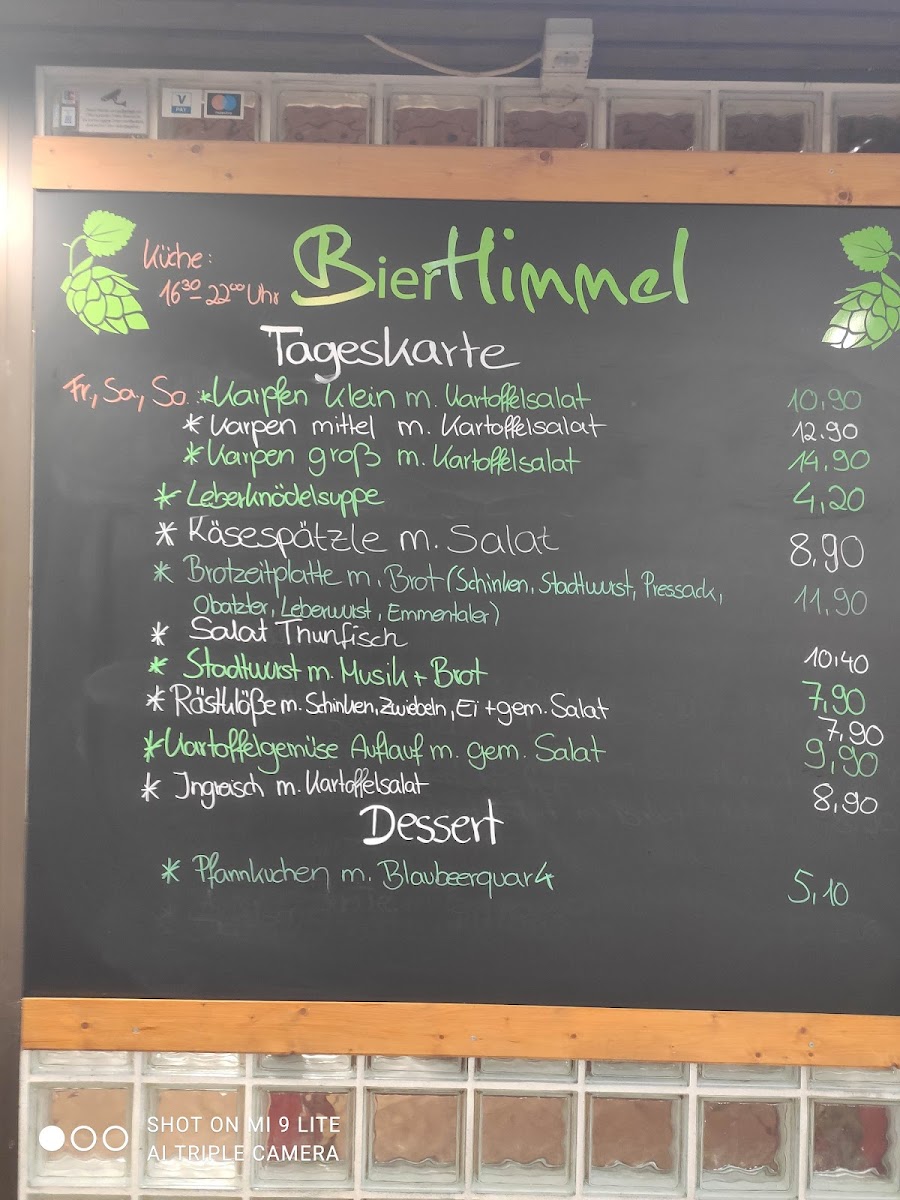 V PAY
BierHimmel
Küche:
16³⁰-22⁰⁰ Uhr
Tageskarte
Fr, Sa, So *Karpfen Klein m. Kartoffelsalat 10,90
* Karpen mittel m. Kartoffelsalat 12.90
* Karpen groß m. Kartoffelsalat 14.90
* Leberknödelsuppe 4,20
* Käsespätzle m. Salat 8,90
* Brotzeitplatte m. Brot (Schinken, Stadtwurst, Pressack, 11,90
Obatzter, Leberwurst, Emmentaler)
* Salat Thunfisch 10,40
* Stadtwurst m. Musik + Brot 7,90
* Röstklöße m. Schinken, Zwiebeln, Ei + gem. Salat 7,90
* Kartoffelgemüse Auflauf m. gem. Salat 9,90
* Ingreisch m. Kartoffelsalat 8,90
Dessert
* Pfannkuchen m. Blaubeerquark 5,10
SHOT ON MI 9 LITE
AI TRIPLE CAMERA